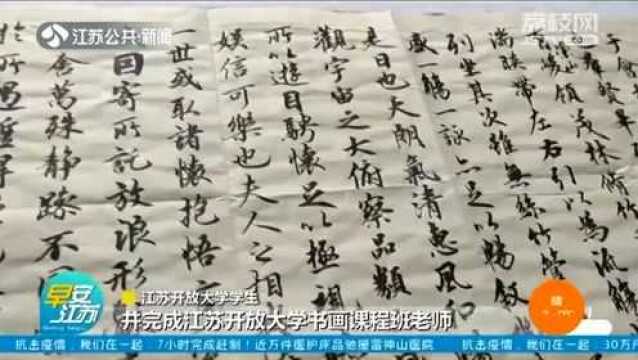 江苏公共·新闻
荔枝网
領茂林脩竹
湍映帶左右引以為流觴
列坐其次雖無絲竹管
盛一觴一詠亦足以暢敘
是日也天朗氣清惠風和
觀宇宙之大俯察品類
所以遊目騁懷足以極視
娛信可樂也夫人之相
一世或取諸懷抱悟
因寄所託放浪形
舍萬殊静躁不同
於所遇蹔得
早安江苏
江苏开放大学学生
并完成江苏开放大学书画课程班老师
抗击疫情,我们在一起
7小时完成赶制!近万件医护床品驰援雷神山医院
抗击疫情,我们在一起
30万